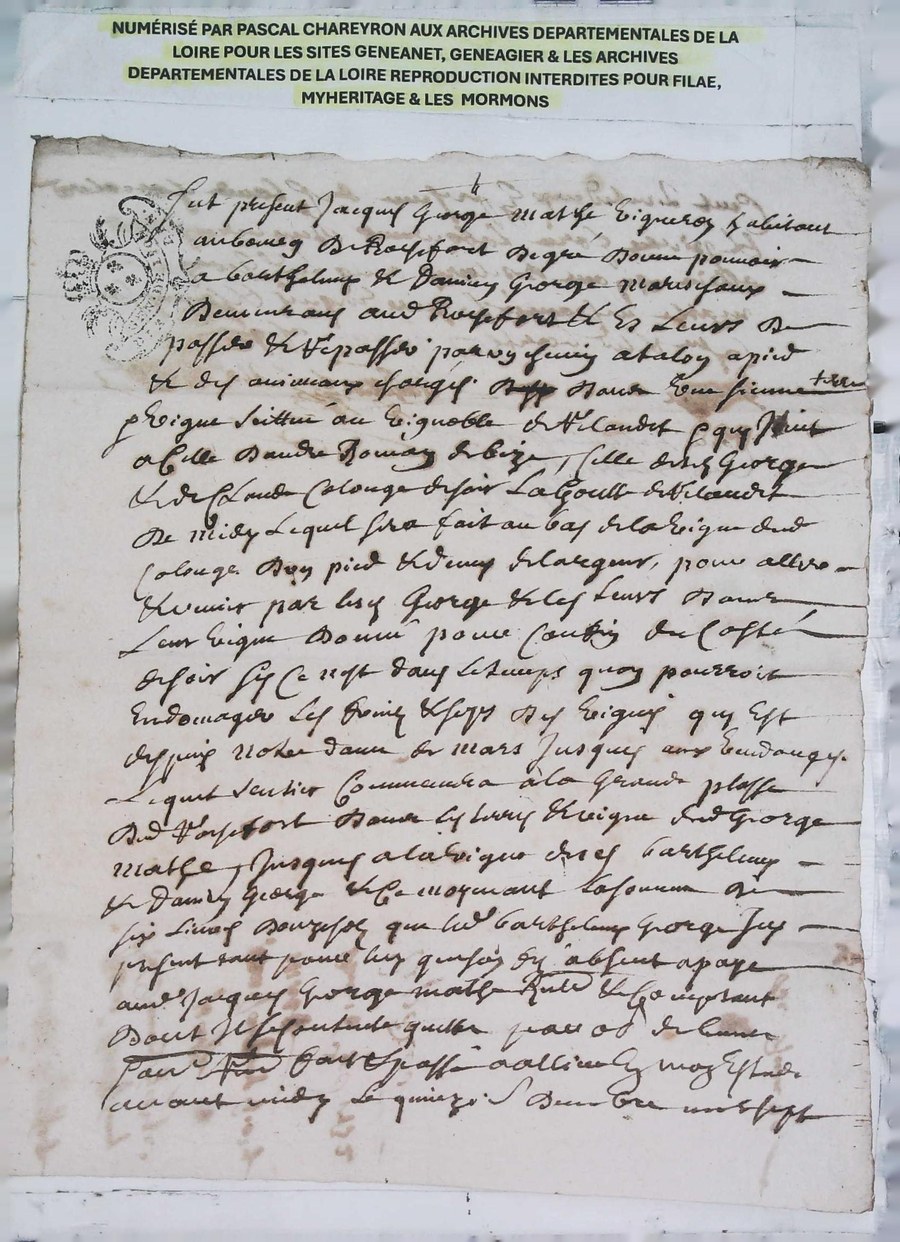 NUMÉRISÉ PAR PASCAL CHAREYRON AUX ARCHIVES DEPARTEMENTALES DE LA
LOIRE POUR LES SITES GENEANET, GENEAGIER & LES ARCHIVES
DEPARTEMENTALES DE LA LOIRE REPRODUCTION INTERDITES POUR FILAE,
MYHERITAGE & LES MORMONS
fut present Jacques George mathe vigneron habitant
au bourg de Rochefort de gré donne pouvoir
a barthelemy & Damien George mareschaux
demeurans aud Rochefort & es leurs de
passer & repasser par un chemin a talon a pied
& des animaux chargés dans une sienne terre
& vigne scittué au vignoble de
a celle de bize, celle desd George
& de Claude Colonge de soir La Goutte
de midy Lequel sera fait au bas de la vigne dud
Colonge d'un pied & demy de largeur, pour aller
& venir par lesd George & les Leurs dans
Leur vigne donné pour confin du Costé
de soir sy ce n'est dans le temps quon pourroit
Endomager Les fruits des vignes quy Est
despuis notre dame de mars Jusques aux vendanges
Lequel sentier Commencera à la Grande plasse
dud Rochefort dans les terres & vigne dud George
mathe, Jusques a la vigne desd barthelemy
& Damien George & Ce moyenant La somme de
six Livres que led barthelemy George Icy
present tant pour luy que son absent a paye
aud Jacques George mathe & Comptant
dont Il se contente quitte
fait & passé
avant midy Le quinze mil sept